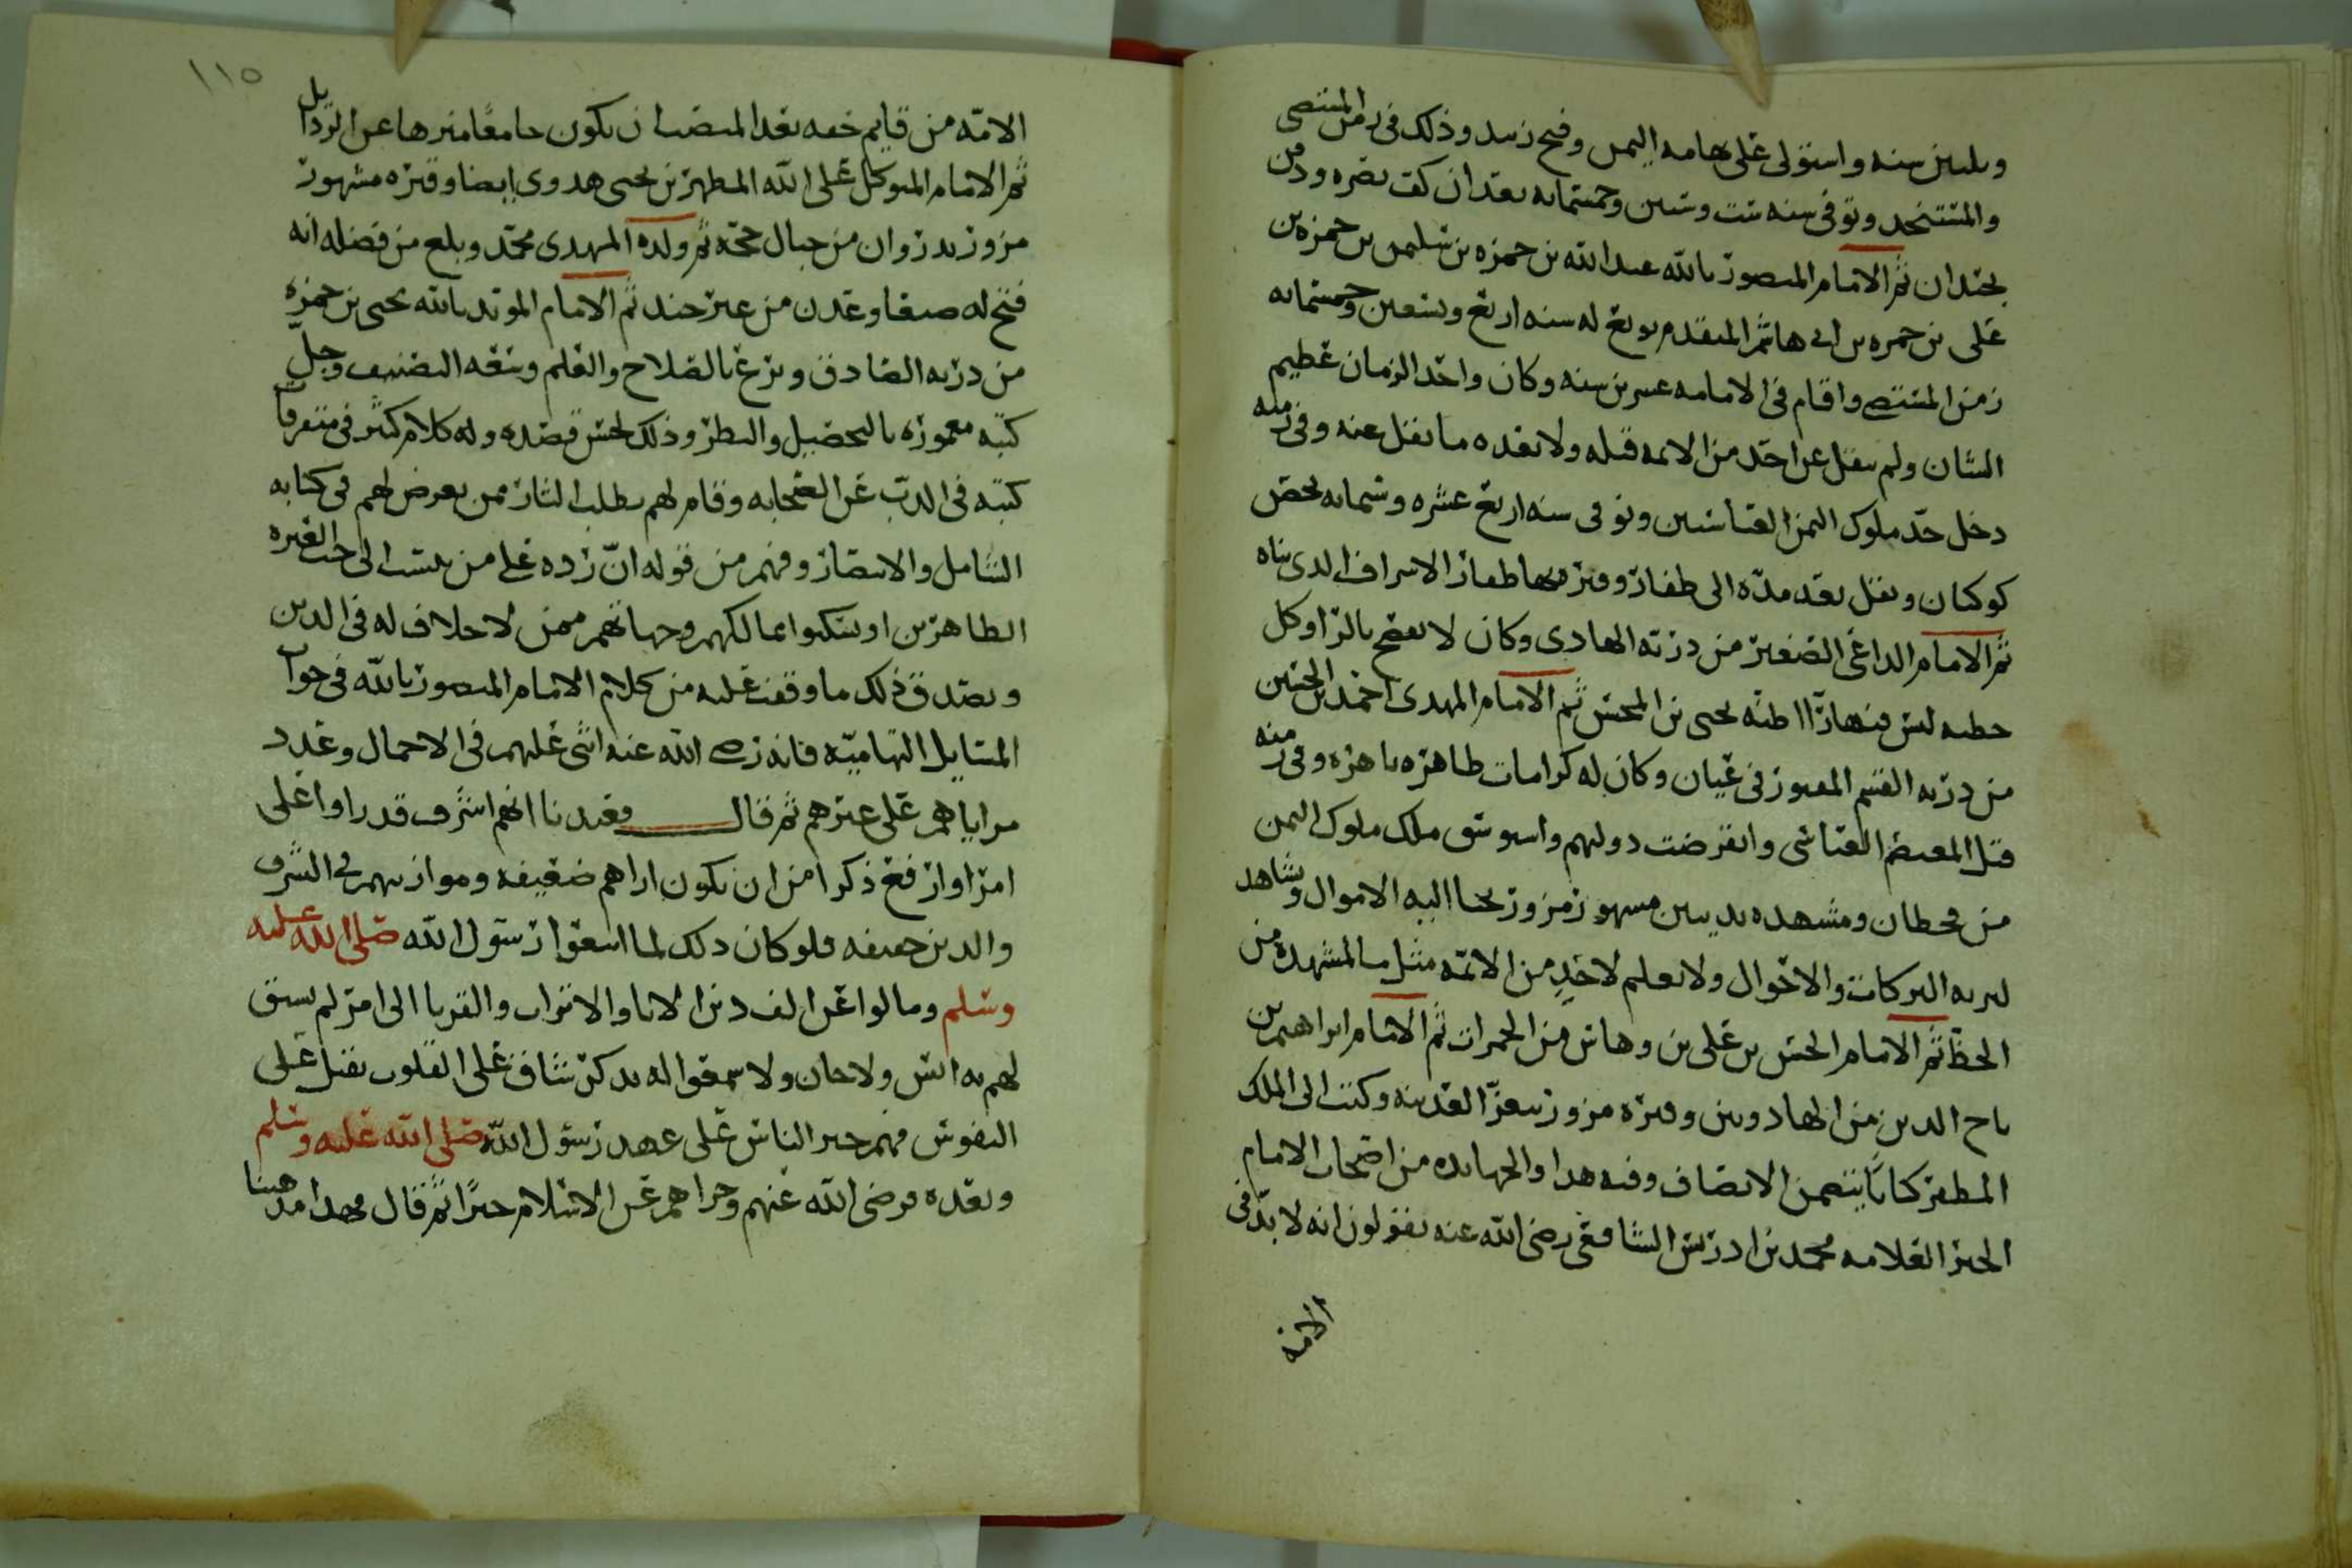 وثلثين سنه واستولى على تهامه اليمن وفتح زبيد وذلك في زمن المقتفي
والمستنجد وتوفي سنه ست وستين وخمسمايه بعد ان كف بصره ودفن
بحيدان ثم الامام المنصور بالله عبدالله بن حمزه بن سليمن بن حمزه بن
علي بن حمزه بن ابي هاشم المتقدم بويع له سنه اربع وتسعين وخمسمايه
زمن واقام في الامامه عشرين سنه وكان واحد الزمان عظيم
الشان ولم ينقل عن احد من الائمه قبله ولا بعده ما نقل عنه وفي زمنه
دخل حد ملوك اليمن العباسيين وتوفي سنه اربع عشره وستمايه بحصن
كوكبان ونقل بعد مده الى ظفار وقبره بها ظفار الاشراف الذي بناه
ثم الامام الداعي الصغير من ذريه الهادي وكان لا يفصح بالرا وكل
خطبه ليس فيها را اظنه يحيى بن المحسن ثم الامام المهدي احمد بن الحسين
من ذريه القسم المقبور في عيان وكان له كرامات ظاهره باهره وفي زمنه
قتل المعتصم العباسي وانقرضت دولتهم واستوسق ملك ملوك اليمن
من قحطان ومشهده بذيبين مشهور مزور تجبا اليه الاموال وشاهد
لتربه البركات والاحوال ولا يعلم لاحد من الائمه مثل ما لمشهده من
الحظ ثم الامام الحسن بن علي بن وهاس من الحمزات ثم الامام ابراهيم بن
تاج الدين من الهادويين وقبره مزور بتعز العدينه وكتب الى الملك
المظفر كتابا يتضمن الانصاف وفيه هذا والجهابذه من اصحاب الامام
الحبر العلامه محمد بن ادريس الشافعي رضي الله عنه يقولون انه لا بد في
الامه
١١٥
الامه من قايم حقه بعد المنصب ان يكون جامعا منزها عن الرذايل
ثم الامام المتوكل على الله المطهر بن يحيى هدوي ايضا وقبره مشهور
مزور بدروان من جبال حجه ثم ولده المهدي محمد وبلغ من فضله انه
فتح له صنعا وعدن من غير جند ثم الامام المويد بالله يحيى بن حمزه
من ذريه الصادق وبرع بالصلاح والعلم وسعه التصنيف وجل
كتبه معموره بالتحصيل والنظر وذلك لحسن قصده وله كلام كثير في متفرقات
كتبه في الذب عن الصحابه وقام لهم بطلب الثار ممن يعرض لهم في كتابه
الشامل والانتصار وفهم من قوله ان رده على من ينتسب الى حب العتره
الطاهرين او يسكنوا ممالكهم وجهاتهم ممن لا خلاف له في الدين
ويصدق ذلك ما وقفت عليه من كلام الامام المنصور بالله في جواب
المسايل التهاميه فانه رضي الله عنه اثنى عليهم في الاجمال وعدد
مزاياهم على غيرهم ثم قال وعندنا انهم اشرف قدرا واعلى
امرا وارفع ذكرا من ان يكون اراهم ضعيفه وموازينهم في الشرف
والدين خفيفه فلو كان ذلك لما اتبعوا رسول الله صلى الله عليه
وسلم ومالوا عن الف دين الابا والاتراب والقربا الى امر لم يسبق
لهم به انس ولا حان ولا سمعوا له بذكر شاق على القلوب ثقيل على
النفوس فهم خير الناس على عهد رسول الله صلى الله عليه وسلم
وبعده فرضي الله عنهم وجزاهم عن الاسلام خيرا ثم قال فهذا مذهبنا